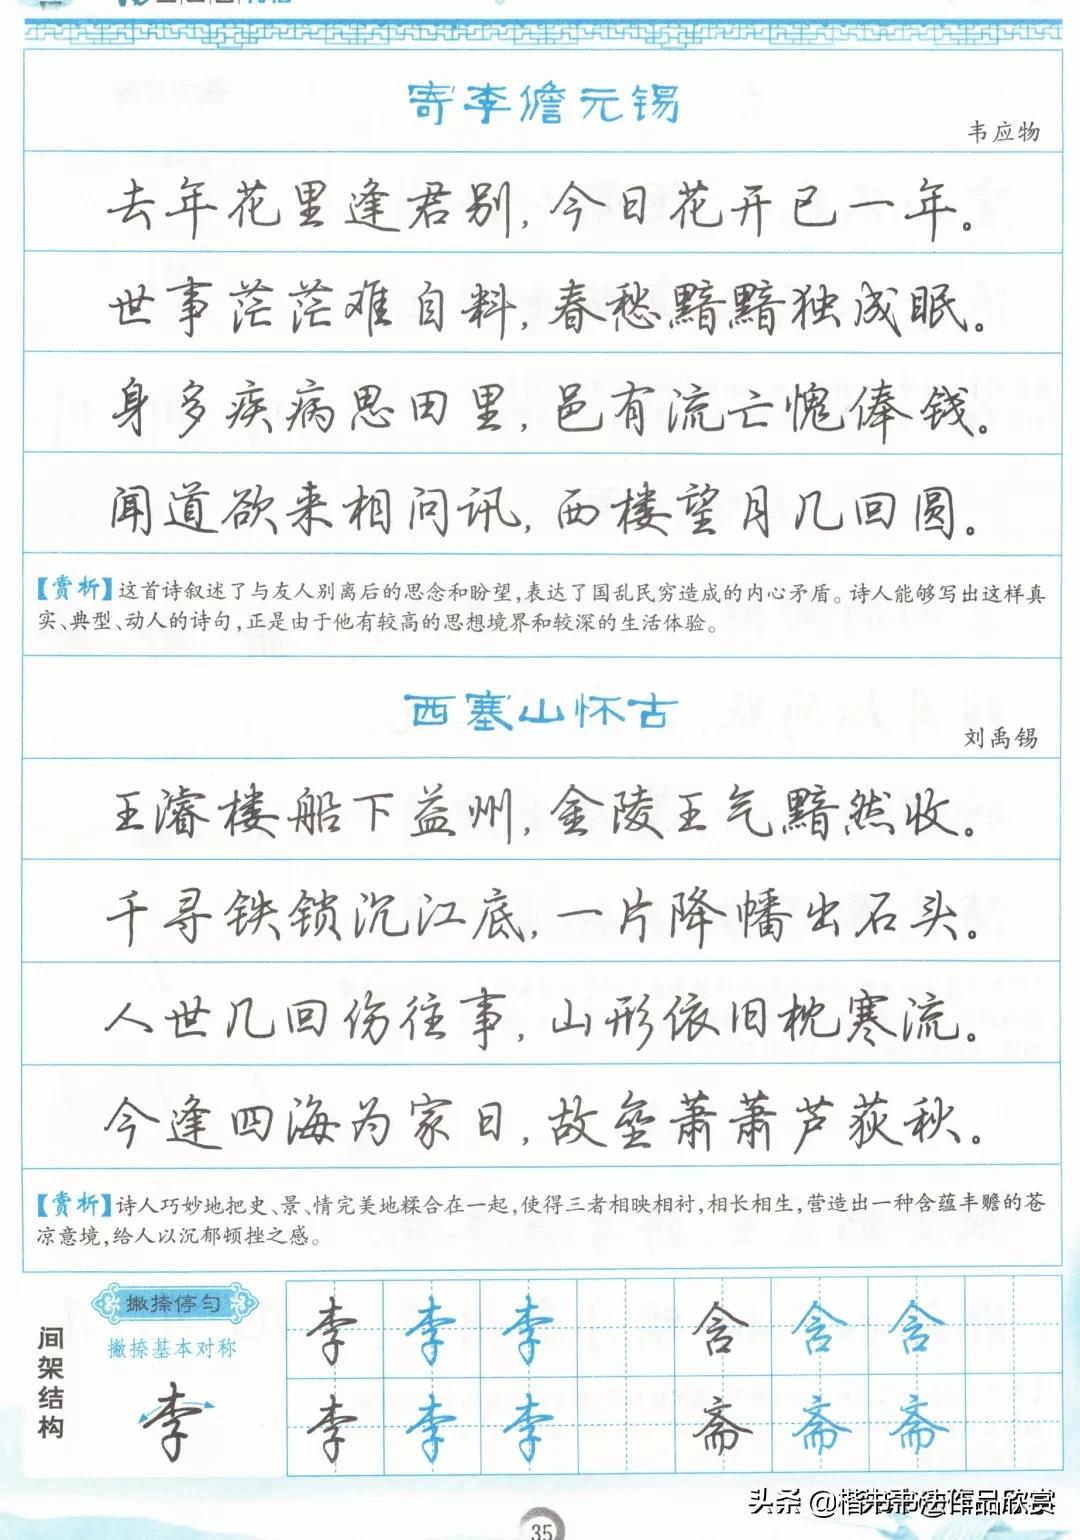 寄李儋元锡
韦应物
去年花里逢君别,今日花开已一年。
世事茫茫难自料,春愁黯黯独成眠。
身多疾病思田里,邑有流亡愧俸钱。
闻道欲来相问讯,西楼望月几回圆。
【赏析】这首诗叙述了与友人别离后的思念和盼望,表达了国乱民穷造成的内心矛盾。诗人能够写出这样真
实、典型、动人的诗句,正是由于他有较高的思想境界和较深的生活体验。
西塞山怀古
刘禹锡
王濬楼船下益州,金陵王气黯然收。
千寻铁锁沉江底,一片降幡出石头。
人世几回伤往事,山形依旧枕寒流。
今逢四海为家日,故垒萧萧芦荻秋。
【赏析】诗人巧妙地把史、景、情完美地糅合在一起,使得三者相映相衬,相长相生,营造出一种含蕴丰赡的苍
凉意境,给人以沉郁顿挫之感。
间架结构
撇捺停匀
撇捺基本对称
李
李 李 李 含 含 含
李 李 李 斋 斋 斋
头条 @楷书书法作品欣赏
35